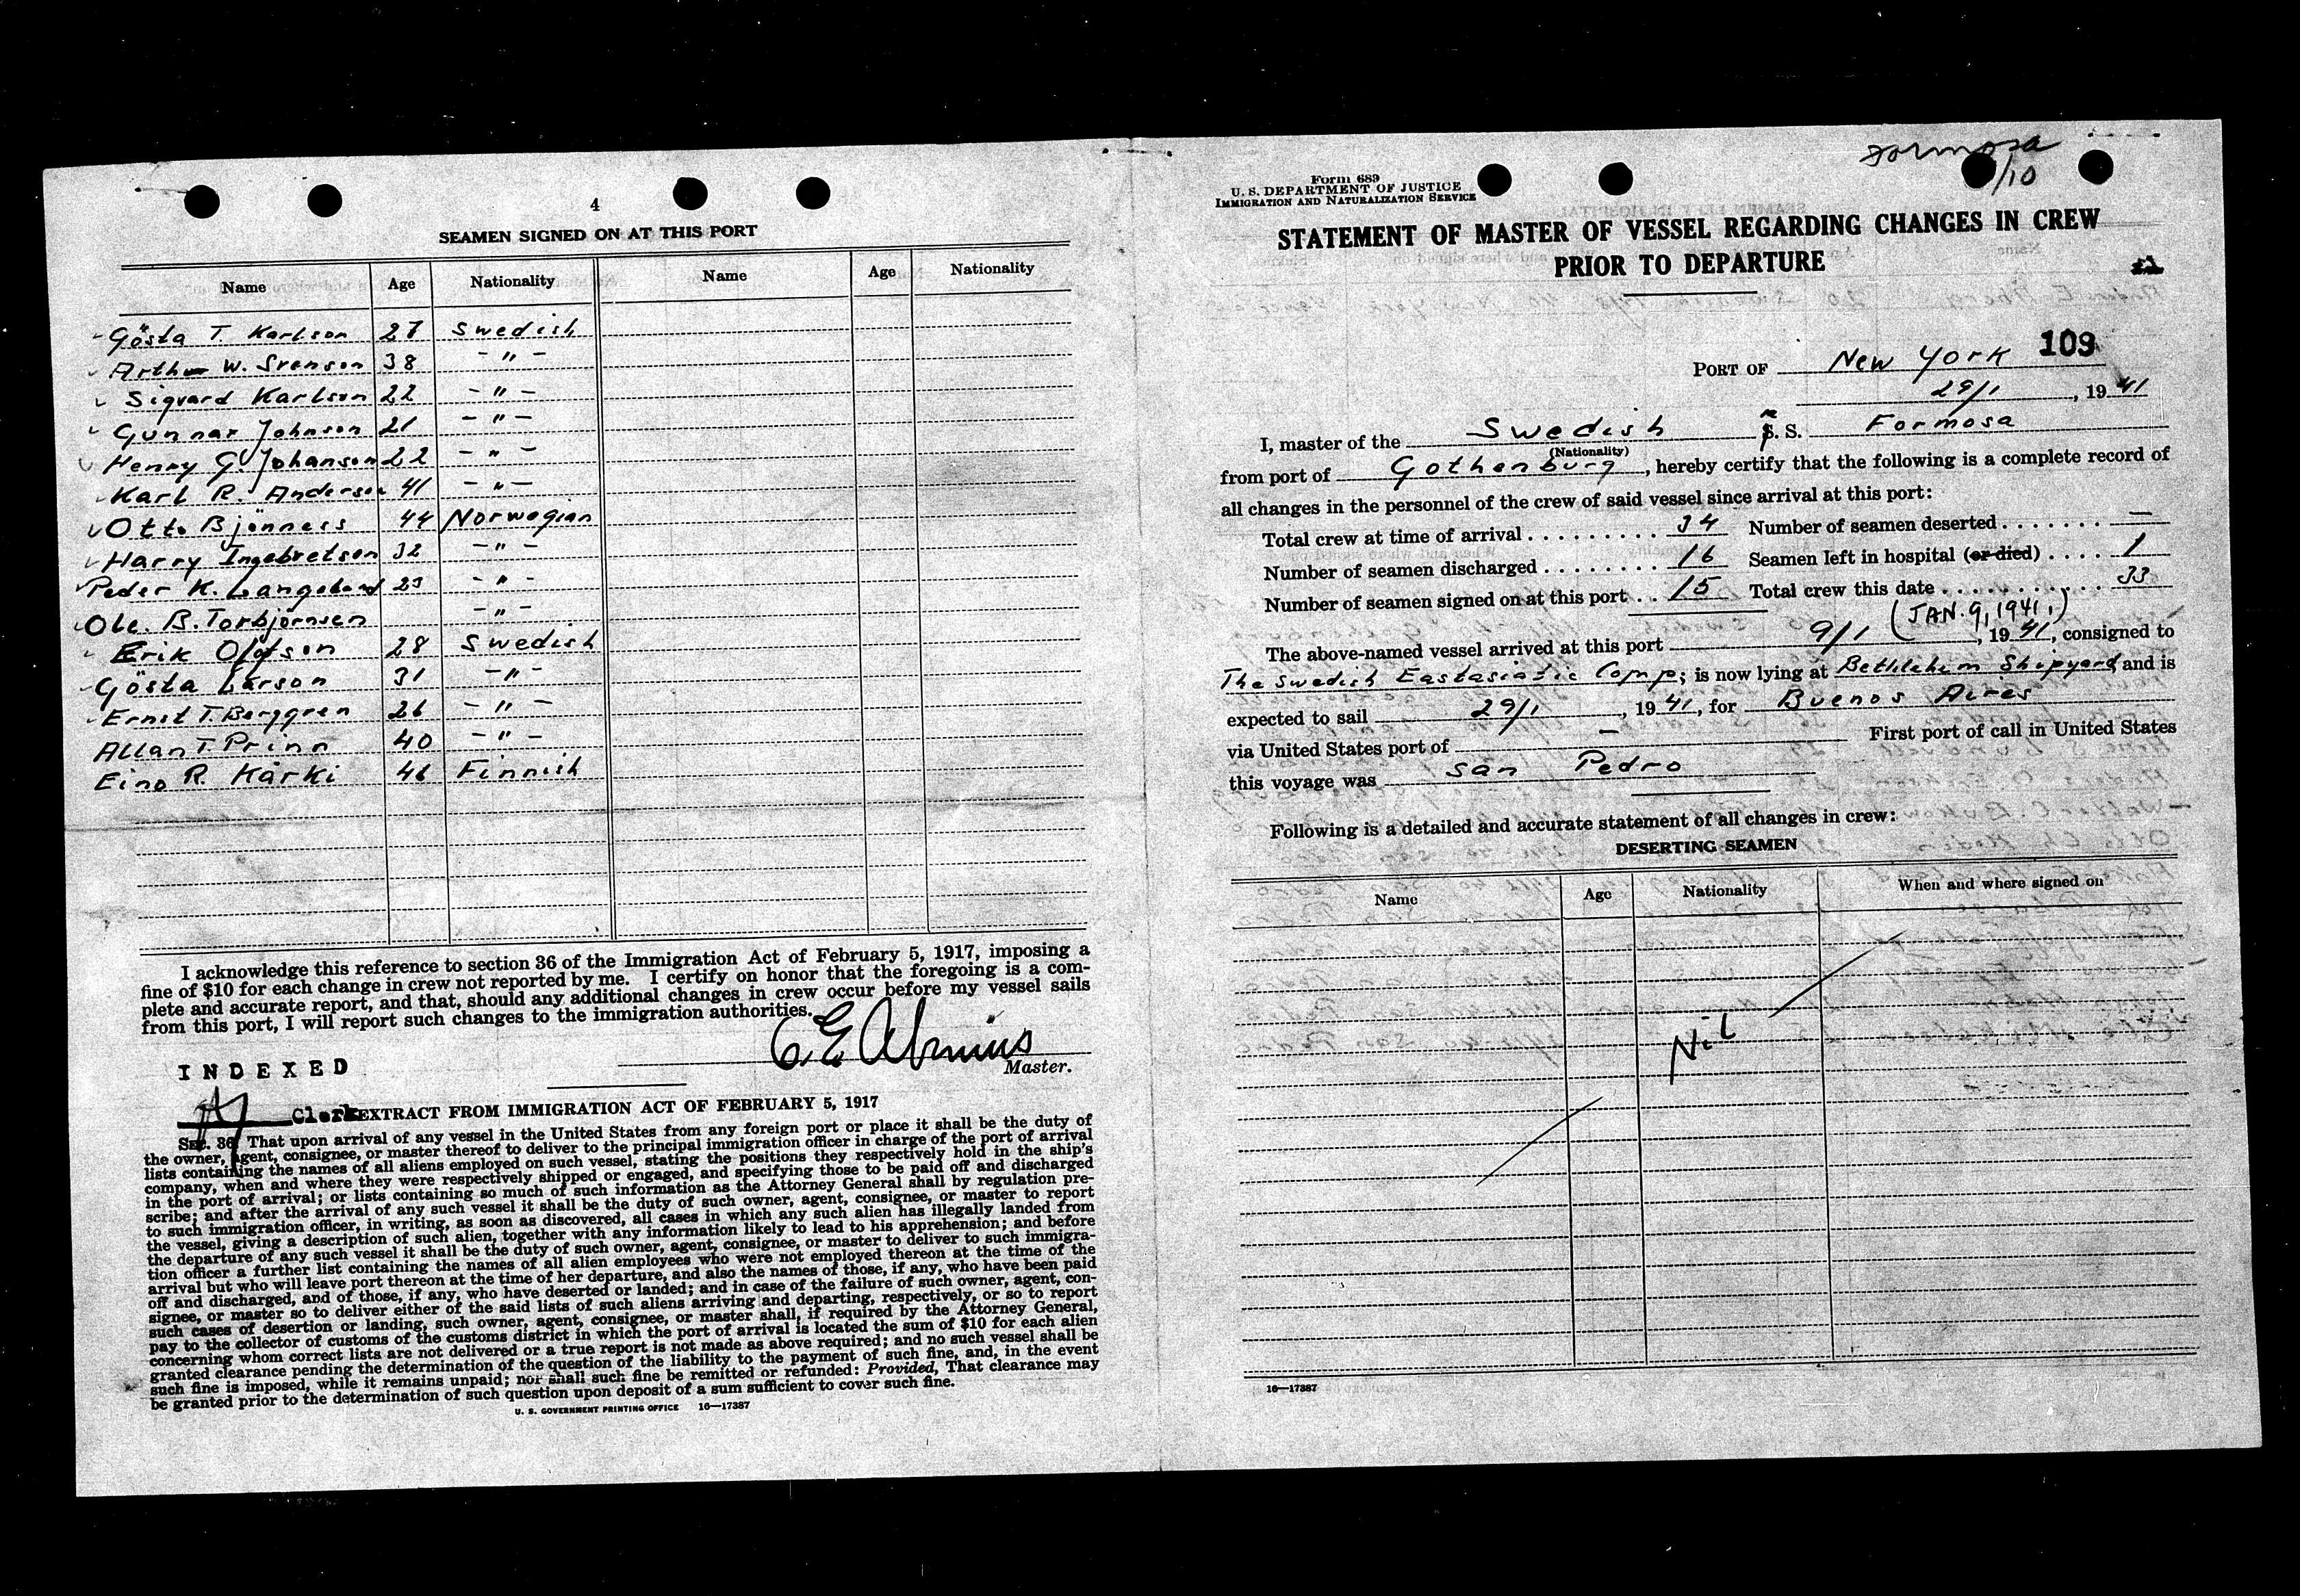 4
SEAMEN SIGNED ON AT THIS PORT
Name Age Nationality Name Age Nationality
Gösta T. Karlson 27 Swedish
Arthur W. Svenson 38 - " -
Sigvard Karlson 22 - " -
Gunnar Johnson 21 - " -
Henry G. Johanson 22 - " -
Karl R. Anderson 41 - " -
Otto Bjönness 44 Norwegian
Harry Ingebretsen 32 - " -
Peder K. 23 - " -
Ole. B. Torbjörnsen - " -
Erik Olofson 28 Swedish
Gösta Larson 31 - " -
Ernst T. Berggren 26 - " -
Allan T. Prinn 40 - " -
Eino R. Kärki 46 Finnish
I acknowledge this reference to section 36 of the Immigration Act of February 5, 1917, imposing a
fine of $10 for each change in crew not reported by me. I certify on honor that the foregoing is a com-
plete and accurate report, and that, should any additional changes in crew occur before my vessel sails
from this port, I will report such changes to the immigration authorities.
Master.
INDEXED
Clerk
EXTRACT FROM IMMIGRATION ACT OF FEBRUARY 5, 1917
SEC. 36. That upon arrival of any vessel in the United States from any foreign port or place it shall be the duty of
the owner, agent, consignee, or master thereof to deliver to the principal immigration officer in charge of the port of arrival
lists containing the names of all aliens employed on such vessel, stating the positions they respectively hold in the ship's
company, when and where they were respectively shipped or engaged, and specifying those to be paid off and discharged
in the port of arrival; or lists containing so much of such information as the Attorney General shall by regulation pre-
scribe; and after the arrival of any such vessel it shall be the duty of such owner, agent, consignee, or master to report
to such immigration officer, in writing, as soon as discovered, all cases in which any such alien has illegally landed from
the vessel, giving a description of such alien, together with any information likely to lead to his apprehension; and before
the departure of any such vessel it shall be the duty of such owner, agent, consignee, or master to deliver to such immigra-
tion officer a further list containing the names of all alien employees who were not employed thereon at the time of the
arrival but who will leave port thereon at the time of her departure, and also the names of those, if any, who have been paid
off and discharged, and of those, if any, who have deserted or landed; and in case of the failure of such owner, agent, con-
signee, or master so to deliver either of the said lists of such aliens arriving and departing, respectively, or so to report
such cases of desertion or landing, such owner, agent, consignee, or master shall, if required by the Attorney General,
pay to the collector of customs of the customs district in which the port of arrival is located the sum of $10 for each alien
concerning whom correct lists are not delivered or a true report is not made as above required; and no such vessel shall be
granted clearance pending the determination of the question of the liability to the payment of such fine, and, in the event
such fine is imposed, while it remains unpaid; nor shall such fine be remitted or refunded: Provided, That clearance may
be granted prior to the determination of such question upon deposit of a sum sufficient to cover such fine.
U. S. GOVERNMENT PRINTING OFFICE 16—17387
Formosa
/10
Form 689
U. S. DEPARTMENT OF JUSTICE
IMMIGRATION AND NATURALIZATION SERVICE
STATEMENT OF MASTER OF VESSEL REGARDING CHANGES IN CREW
PRIOR TO DEPARTURE
109
PORT OF New York
29/1, 1941
I, master of the Swedish S. S. Formosa
(Nationality)
from port of Gothenburg, hereby certify that the following is a complete record of
all changes in the personnel of the crew of said vessel since arrival at this port:
Total crew at time of arrival . . . . . . . . . 34 Number of seamen deserted . . . . . . . —
Number of seamen discharged . . . . . . . . 16 Seamen left in hospital (or died) . . . . 1
Number of seamen signed on at this port . . 15 Total crew this date . . . . . . . . . . 33
(JAN. 9, 1941.)
The above-named vessel arrived at this port 9/1, 1941, consigned to
The Swedish Eastasiatic Comp; is now lying at Bethlehem Shipyard and is
expected to sail 29/1, 1941, for Buenos Aires
via United States port of — First port of call in United States
this voyage was San Pedro
Following is a detailed and accurate statement of all changes in crew:
DESERTING SEAMEN
Name Age Nationality When and where signed on
Nil
16—17387